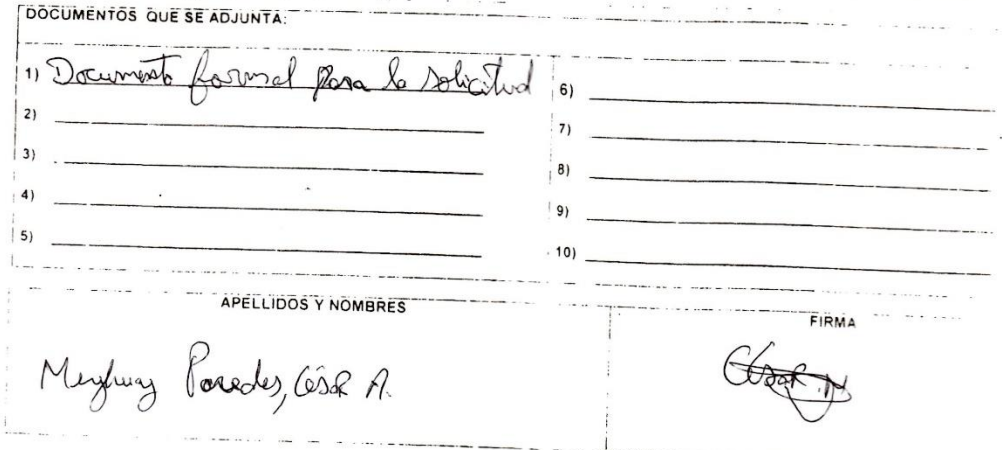 DOCUMENTOS QUE SE ADJUNTA:
1) Documento formal para la solicitud
2)
3)
4)
5)
6)
7)
8)
9)
10)
APELLIDOS Y NOMBRES
Paredes, César A.
FIRMA
César